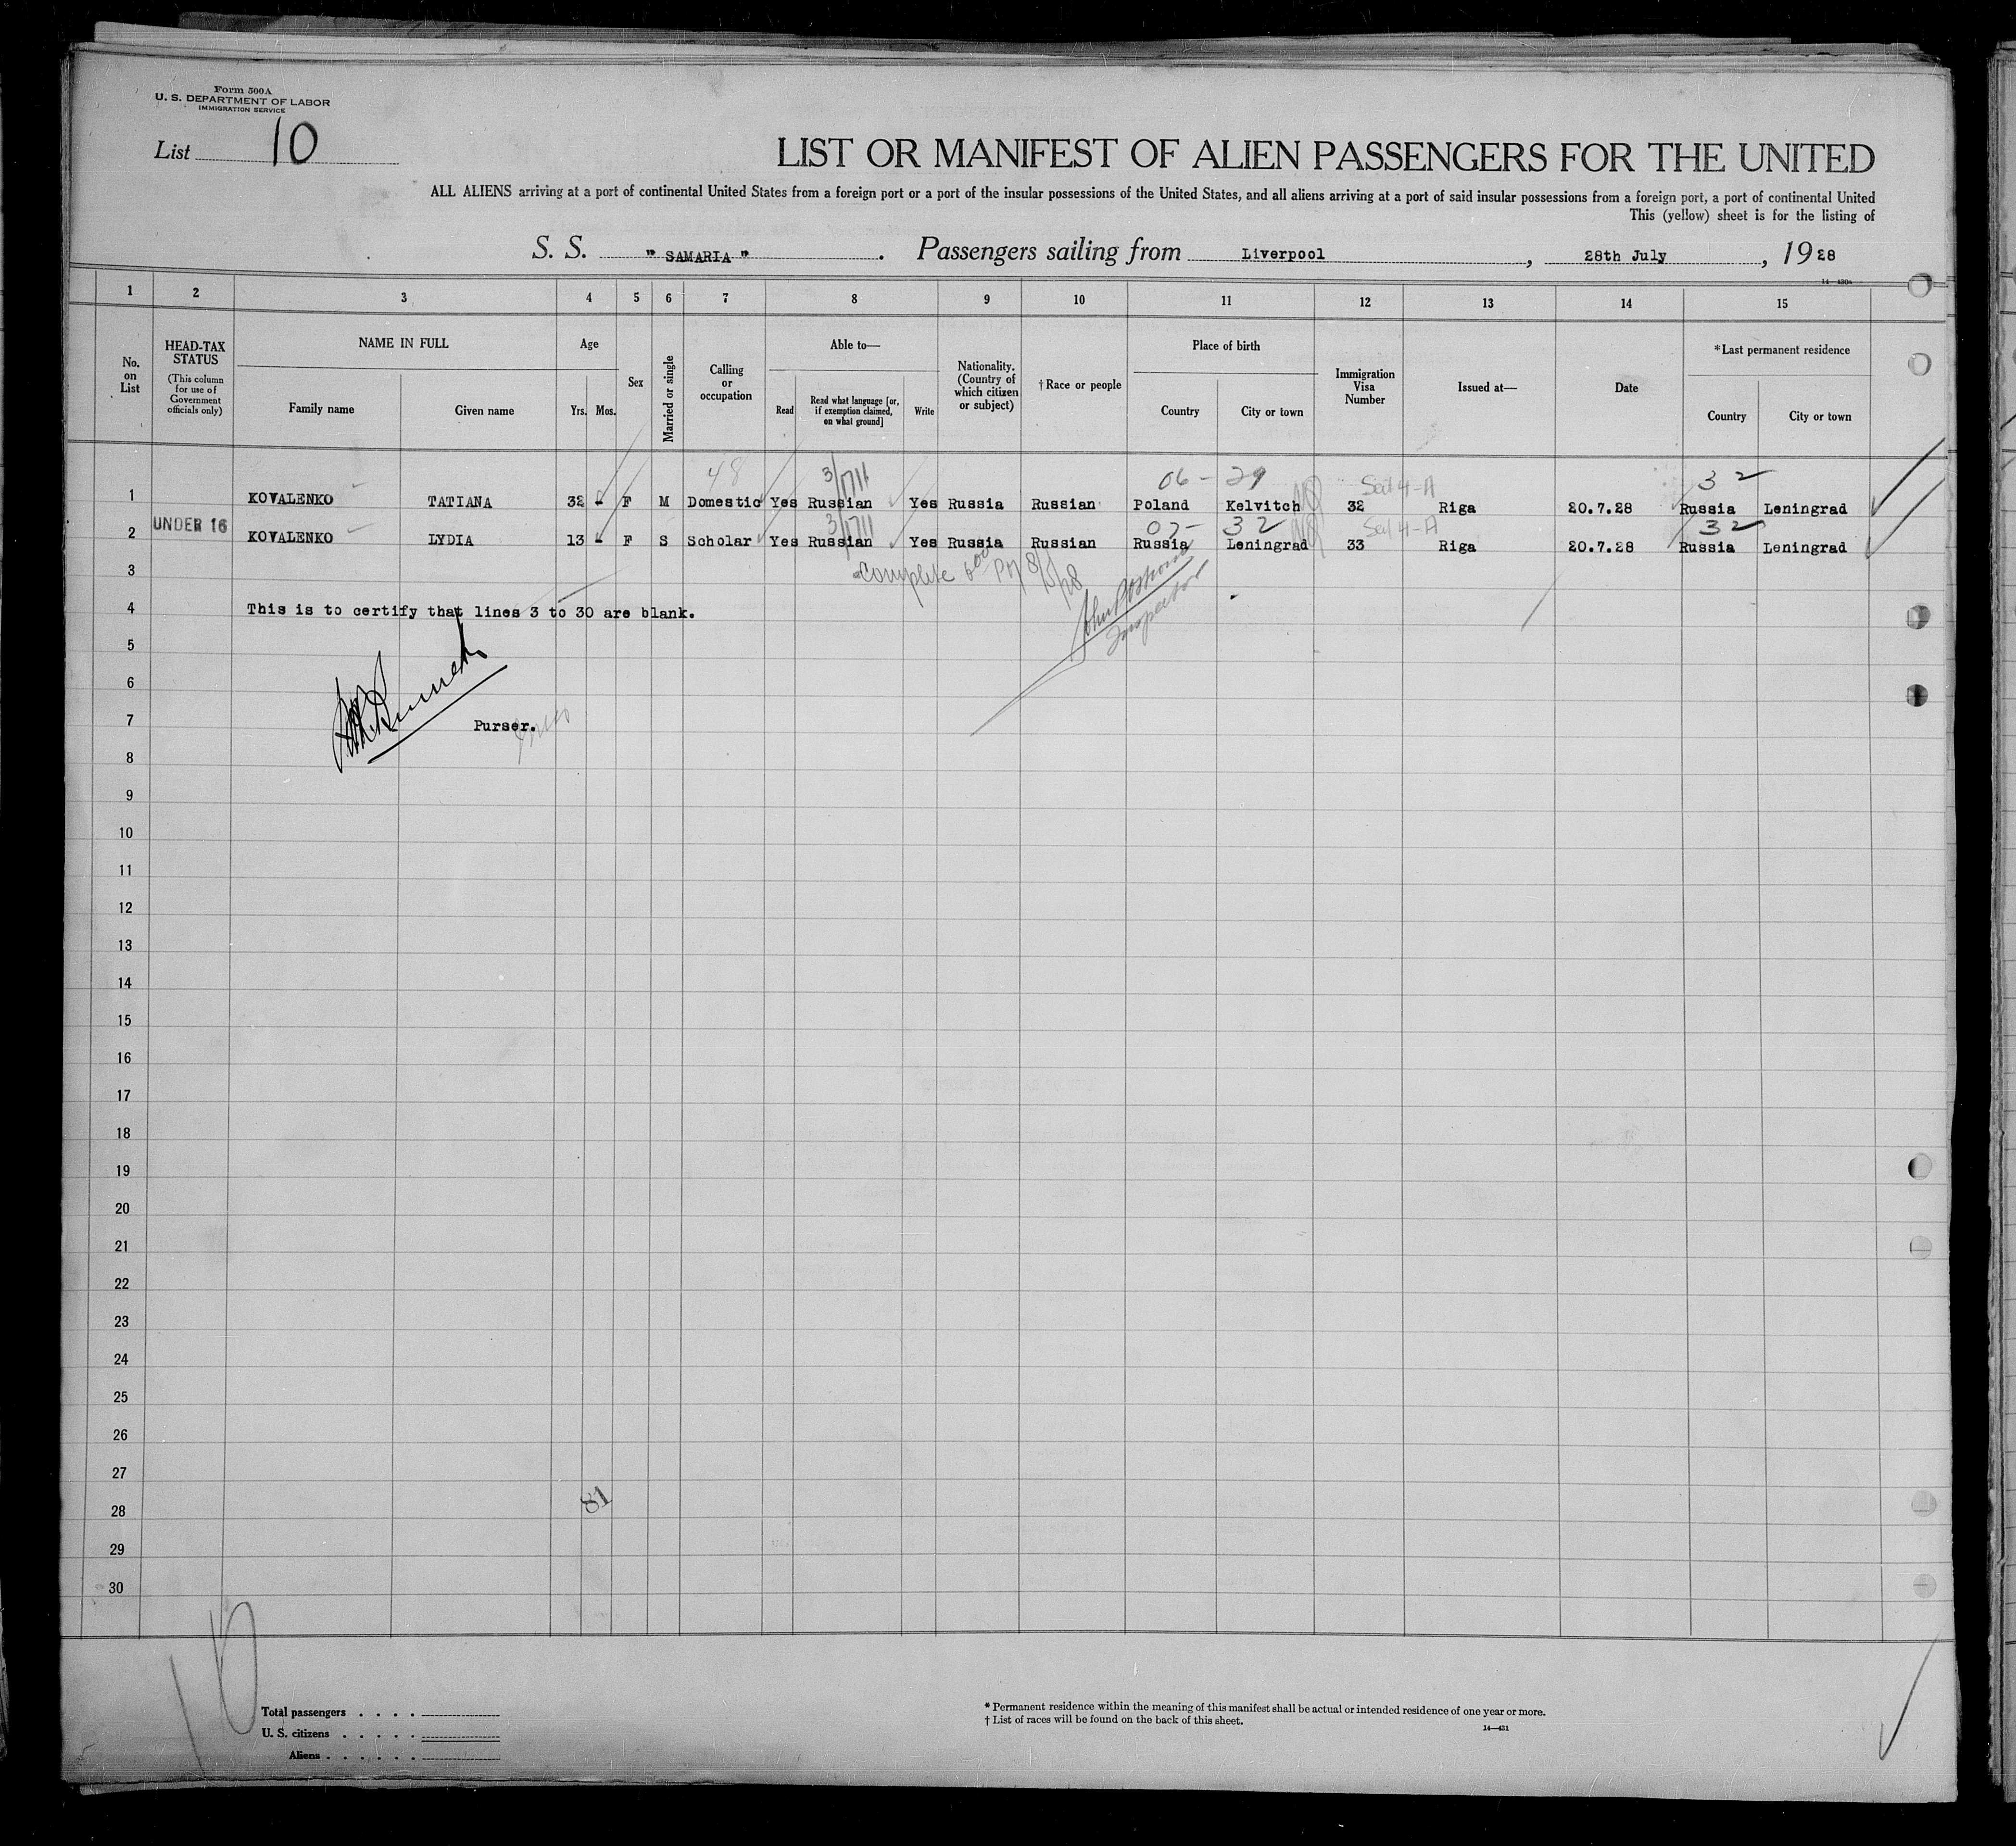 Form 500A
U. S. DEPARTMENT OF LABOR
IMMIGRATION SERVICE
List 10
LIST OR MANIFEST OF ALIEN PASSENGERS FOR THE UNITED
ALL ALIENS arriving at a port of continental United States from a foreign port or a port of the insular possessions of the United States, and all aliens arriving at a port of said insular possessions from a foreign port, a port of continental United
This (yellow) sheet is for the listing of
S. S. " SAMARIA " . Passengers sailing from Liverpool , 28th July , 1928
1 2 3 4 5 6 7 8 9 10 11 12 13 14 15
No. on List
HEAD-TAX STATUS (This column for use of Government officials only)
NAME IN FULL
Family name Given name
Age
Yrs. Mos.
Sex
Married or single
Calling or occupation
Able to—
Read
Read what language [or, if exemption claimed, on what ground]
Write
Nationality. (Country of which citizen or subject)
†Race or people
Place of birth
Country City or town
Immigration Visa Number
Issued at—
Date
*Last permanent residence
Country City or town
48 3/711 06 - 29 Sec 4-A 32
1 KOVALENKO TATIANA 32 - F M Domestic Yes Russian Yes Russia Russian Poland Kelvitch 32 Riga 20.7.28 Russia Leningrad
UNDER 16 3/711 07- 32 Sec 4-A 32
2 KOVALENKO LYDIA 13 - F S Scholar Yes Russian Yes Russia Russian Russia Leningrad 33 Riga 20.7.28 Russia Leningrad
3 Complete
4 This is to certify that lines 3 to 30 are blank.
Inspector
5
6
7 Purser.
8
9
10
11
12
13
14
15
16
17
18
19
20
21
22
23
24
25
26
27
28 81
29
30
10
Total passengers . . . .
U. S. citizens . . . . .
Aliens . . . . . .
* Permanent residence within the meaning of this manifest shall be actual or intended residence of one year or more.
† List of races will be found on the back of this sheet.
14—431